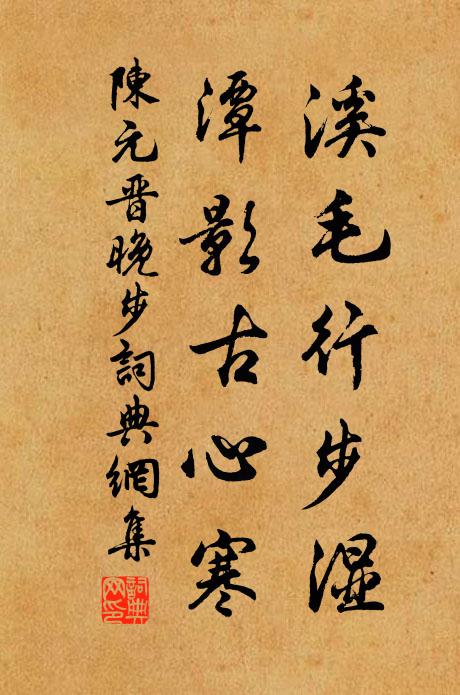 溪毛行步濕
潭影古心寒
陳元晋晚步詞典網集
詞典網印